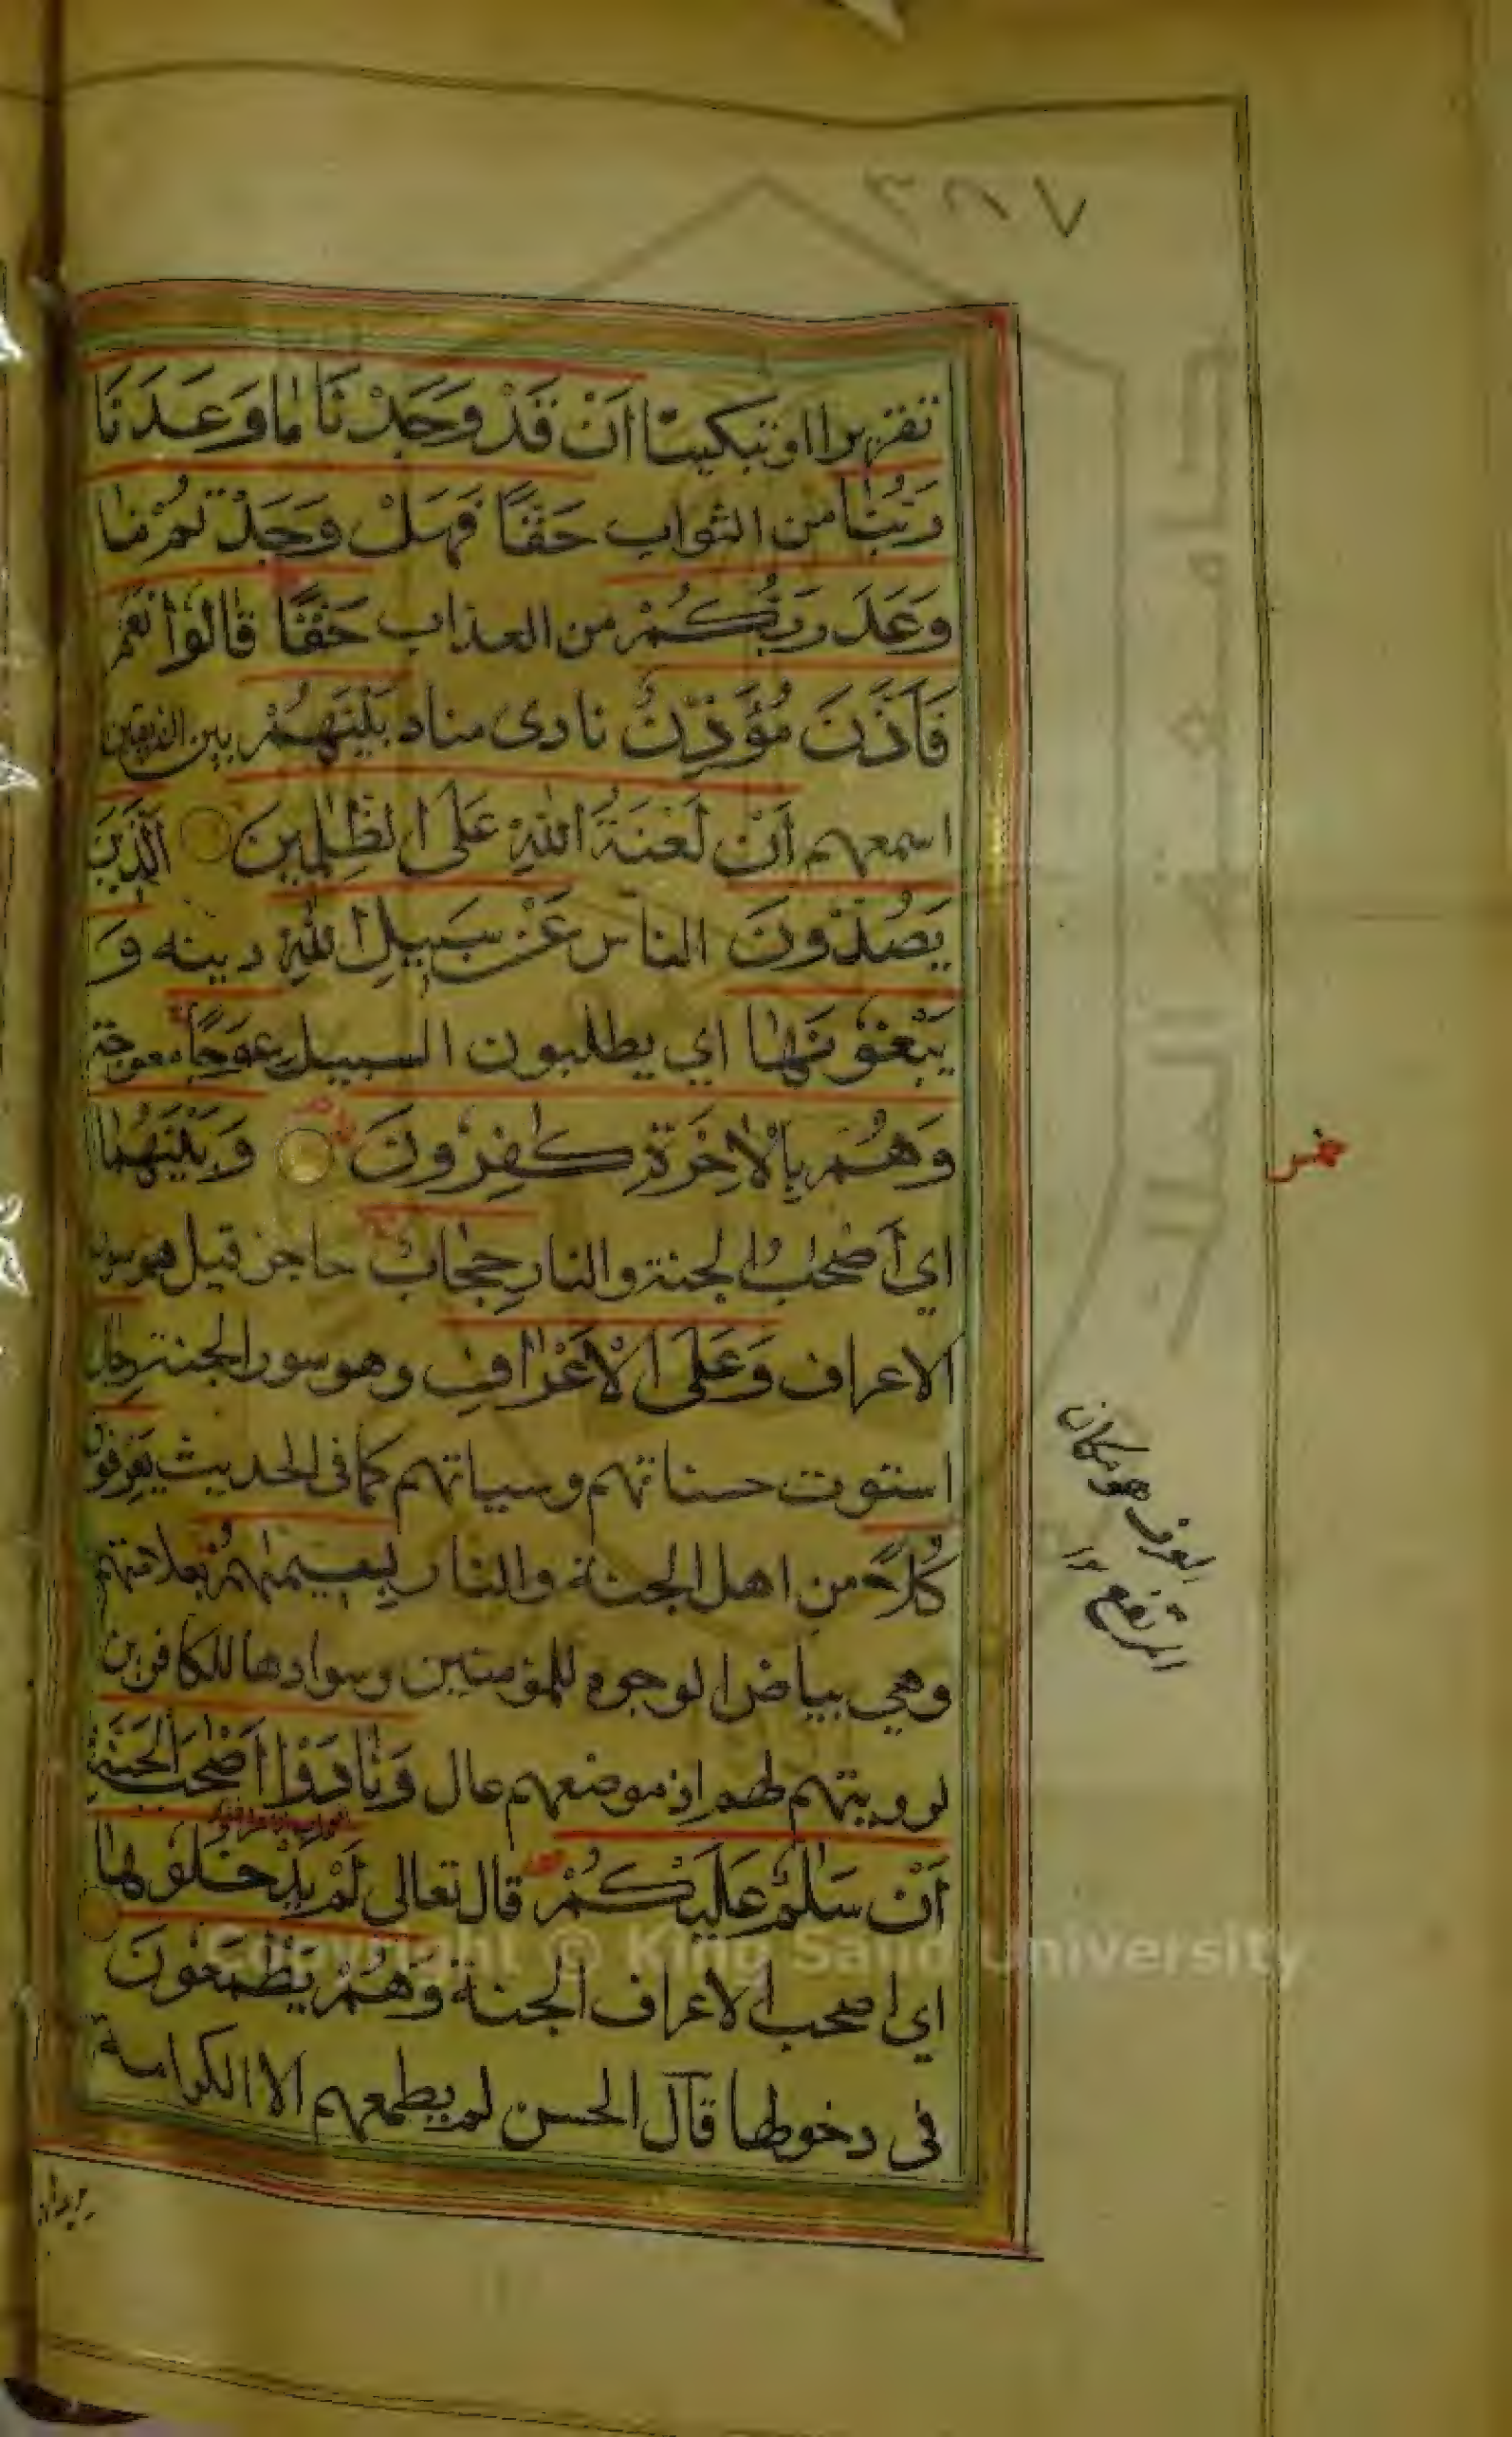 ٣٨٧
تقريرا او تبكيتا اَنْ قَدْ وَجَدْنَا مَا وَعَدَنَا
رَبُّنَا من الثواب حَقًّا فَهَلْ وَجَدْتُمْ مَا
وَعَدَ رَبُّكُمْ من العذاب حَقًّا قَالُوْا نَعَمْ
فَاَذَّنَ مُؤَذِّنٌ نادى مناد بَيْنَهُمْ بين الفريقين
اسمعهم اَنْ لَعْنَةُ اللهِ عَلَى الظّٰلِمِينَ الَّذِينَ
يَصُدُّونَ الناس عَنْ سَبِيلِ اللهِ دينه وَ
يَبْغُوْنَهَا اي يطلبون السبيل عِوَجًا معوجة
وَهُمْ بِالْاٰخِرَةِ كٰفِرُونَ وَبَيْنَهُمَا
اي أصْحٰبُ الجنة والنار حِجَابٌ حاجز قيل هو سور
الاعراف وَعَلَى الْاَعْرَافِ وهو سور الجنة رِجَالٌ
استوت حسناتهم وسياتهم كما فى الحديث يَعْرِفُونَ
كُلًّا من اهل الجنة والنار بِسِيمٰهُمْ بعلامتهم
وهي بياض الوجوه للمؤمنين وسوادها للكافرين
لرويتهم لهم اذ موضعهم عال وَنَادَوْا اَصْحٰبَ الْجَنَّةِ
اَنْ سَلٰمٌ عَلَيْكُمْ قال تعالى لَمْ يَدْخُلُوْهَا
اي اصحب الاعراف الجنة وَهُمْ يَطْمَعُونَ
فى دخولها قال الحسن لم يطمعهم الا الكرامة
يريدها
لعرف هو مكان
المرتفع ١٢
Copyright © King Saud University
جامعة الملك